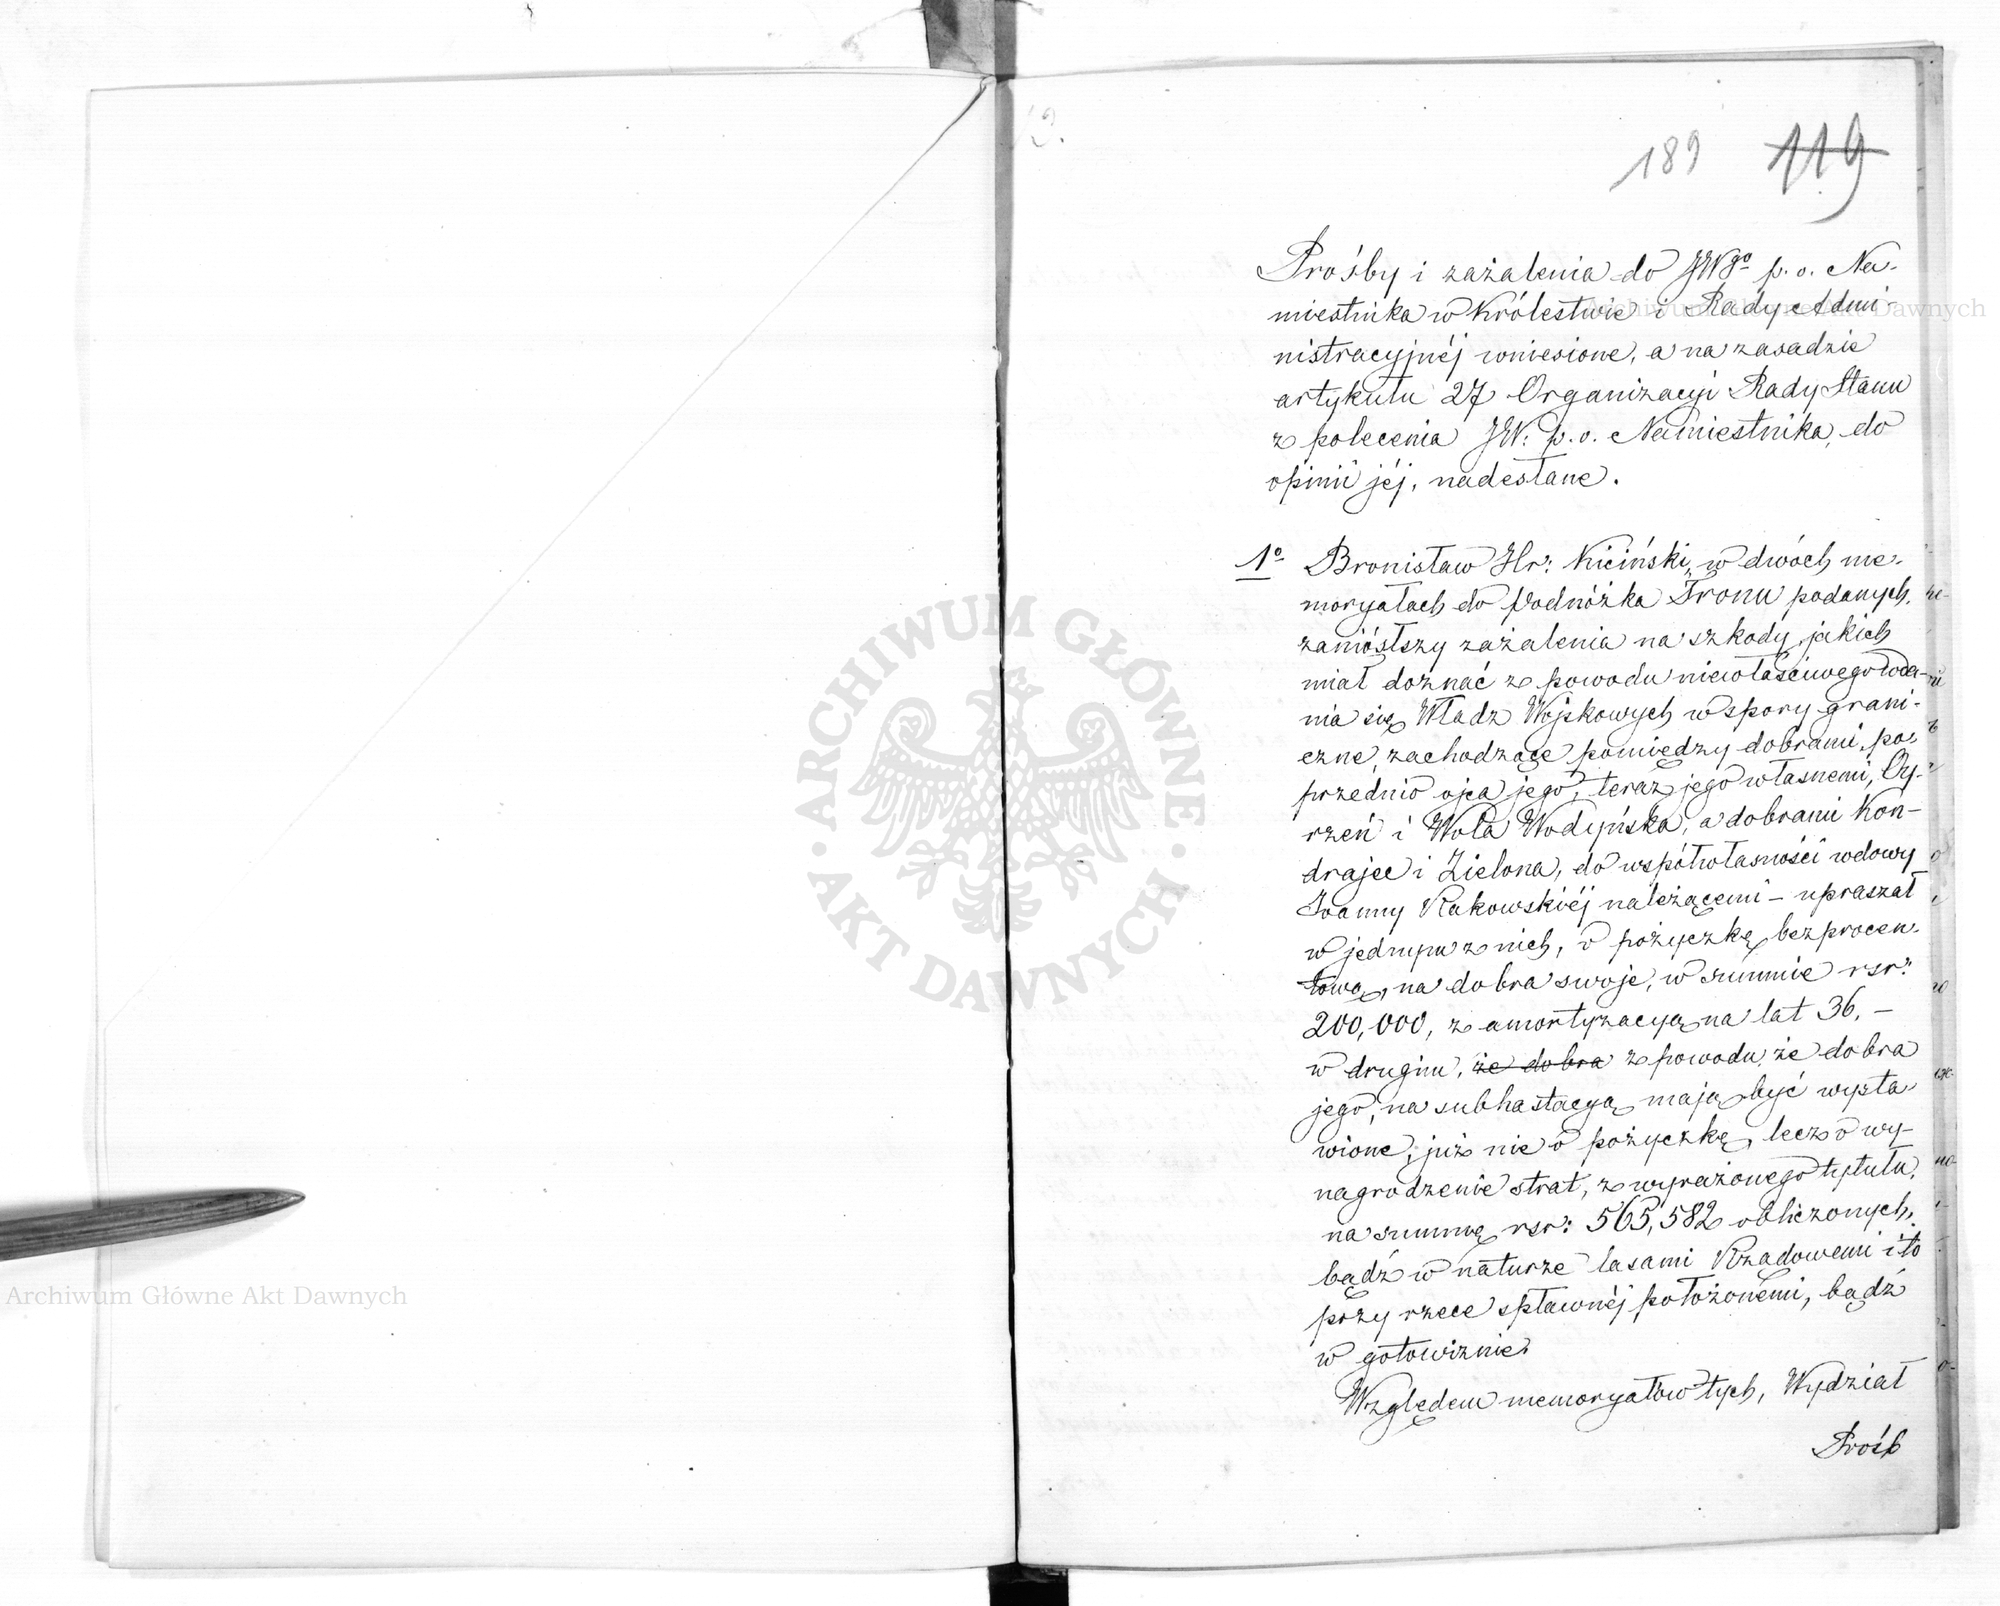 189 119
Prośby i zażalenia do JWgo p. o. Na-
miestnika w Królestwie i Rady Admi-
nistracyjnéj wniesione, a na zasadzie
artykułu 27 Organizacyi Rady Stanu
z polecenia JW. p. o. Namiestnika, do
opinii jéj, nadesłane.
1o Bronisław Hr: Kiciński, w dwóch me-
moryałach do Podnóżka Tronu podanych,
zaniósłszy zażalenia na szkody, jakich
miał doznać z powodu niewłaściwego wda-
nia się Władz Wojskowych w spory grani-
czne, zachodzące pomiędzy dobrami, po-
przednio ojca jego, teraz jego własnemi, Oy-
rzeń i Wola Wodyńska, a dobrami Kon-
drajec i Zielona, do współwłasności wdowy
Joanny Rakowskiéj należącemi – upraszał
w jednym z nich, o pożyczkę bezprocen-
tową, na dobra swoje, w summie rsr:
200,000, z amortyzacyą na lat 36, –
w drugim, że dobra z powodu, że dobra
jego, na subhastacyą mają być wysta-
wione, już nie o pożyczkę, lecz o wy-
nagrodzenie strat, z wyrażonego tytułu,
na summę rsr: 565,582 obliczonych,
bądź w naturze lasami Rządowemi i to
przy rzece spławnéj położonemi, bądź
w gotowiznie.
Względem memoryałów tych, Wydział
Prośb
ARCHIWUM GŁÓWNE AKT DAWNYCH
Archiwum Główne Akt Dawnych
Archiwum Główne Akt Dawnych